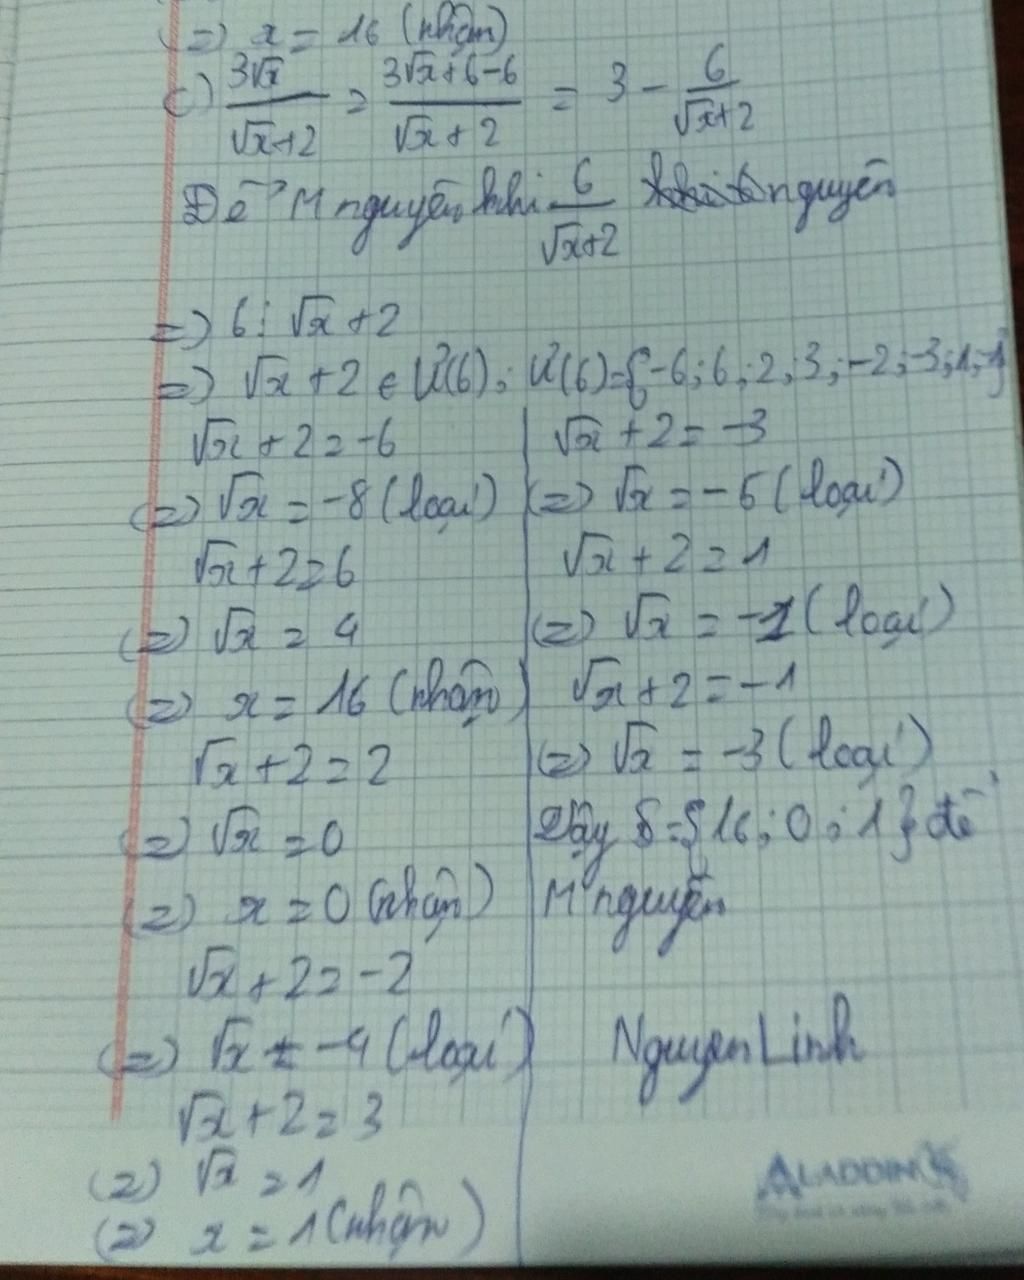 (=) x = 16 (nhận)
c) 3√x/√x+2 = 3√x+6-6/√x+2 = 3 - 6/√x+2
Để M nguyên khi 6/√x+2 nguyên
=) 6 ⋮ √x + 2
=) √x + 2 ∈ Ư(6); Ư(6)={-6; 6; 2; 3; -2; -3; 1; -1}
√x + 2 = -6
(=) √x = -8 (loại)
√x + 2 = 6
(=) √x = 4
(=) x = 16 (nhận)
√x + 2 = 2
(=) √x = 0
(=) x = 0 (nhận)
√x + 2 = -2
(=) √x = -4 (loại)
√x + 2 = 3
(=) √x = 1
(=) x = 1 (nhận)
√x + 2 = -3
(=) √x = -5 (loại)
√x + 2 = 1
(=) √x = -1 (loại)
√x + 2 = -1
(=) √x = -3 (loại)
Vậy S = {16; 0; 1} để
M nguyên
Nguyen Linh
ALADDIN